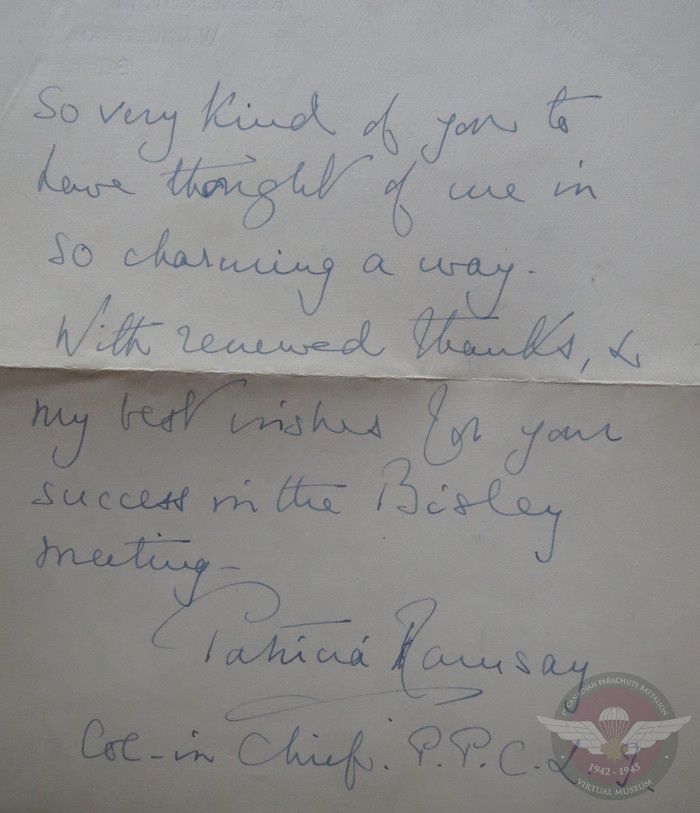 So very kind of you to
have thought of me in
so charming a way.
With renewed thanks, &
my best wishes for your
success in the Bisley
meeting -
Patricia Ramsay
Col-in Chief. P.P.C.L.I.
1ST CANADIAN PARACHUTE BATTALION
1942 - 1945
VIRTUAL MUSEUM